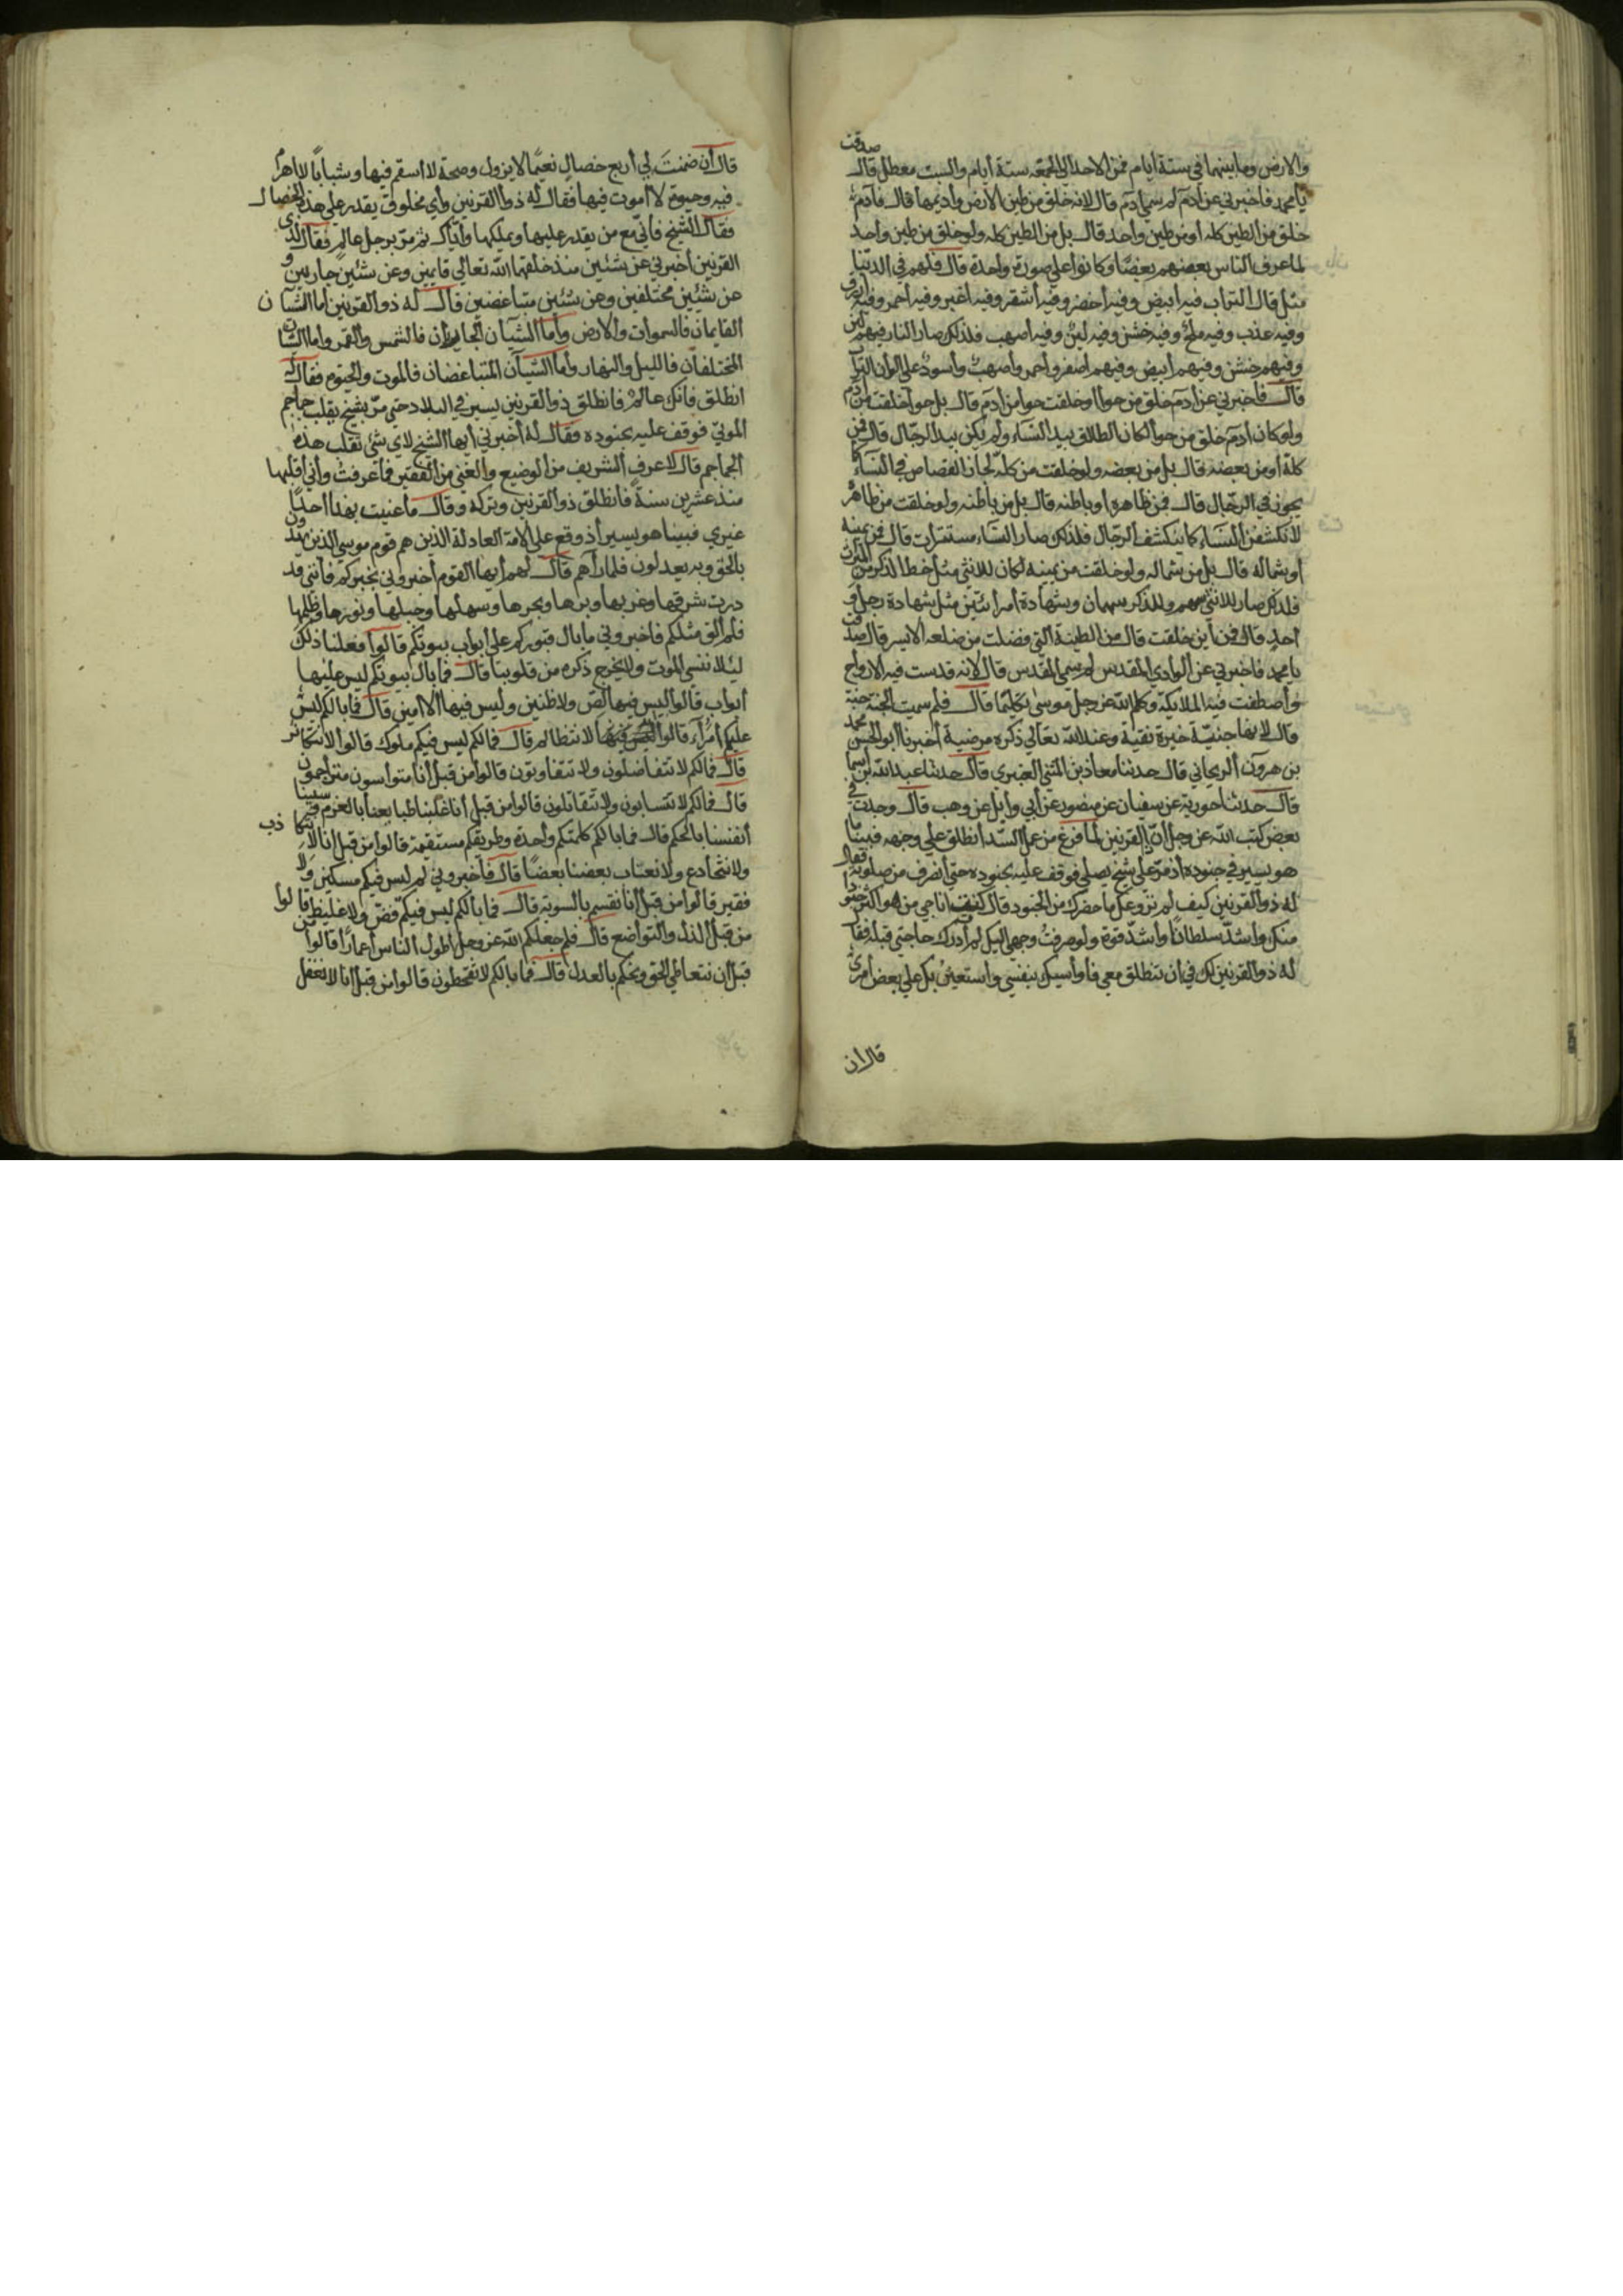 صدقت
والارض وما بينهما في ستة أيام فمن الاحد الي الجمعه ستة أيام والسبت معطل قال
يا محمد فاخبرني عن آدم لم سمي آدم قال لانه خلق من طين الأرض وأديمها قال فآدم
خلق من الطين كله أو من طين واحد قال بل من الطين كله ولو خلق من طين واحد
لما عرف الناس بعضهم بعضًا وكانوا علي صورة واحدة قال فلهم في الدنيا
مثل قال التراب فيه أبيض وفيه أخضر وفيه أشقر وفيه أغبر وفيه أحمر وفيه أزرق
وفيه عذب وفيه ملح وفيه خشن وفيه لين وفيه أصهب فلذلك صار الناس فيهم لين
وفيهم خشن وفيهم أبيض وفيهم أصفر وأحمر وأصهب وأسود علي الوان التراب
قال فاخبرني عن آدم خلق من حوا أو خلقت حوا من آدم قال بل حوا خلقت من آدم
ولو كان آدم خلق من حوا لكان الطلاق بيد النساء ولم يكن بيد الرجال قال فمن
كله أو من بعضه قال بل من بعضه ولو خلقت من كله لجاز القصاص في النساء كما
يجوز في الرجال قال فمن ظاهره أو باطنه قال بل من باطنه ولو خلقت من ظاهره
لانكشفن النساء كما ينكشف الرجال فلذلك صار النساء مستترات قال فمن يمينه
أو شماله قال بل من شماله ولو خلقت من يمينه لكان للانثي مثل حظ الذكر من الميراث
فلذلك صار للانثي سهم وللذكر سهمان وبشهادة امرأتين مثل شهادة رجل و
احد قال فمن أين خلقت قال من الطينة التي فضلت من ضلعه الايسر قال صدقت
يا محمد فاخبرني عن الوادي المقدس لم سمي المقدس قال لانه قدست فيه الارواح
وأصطفت فيه الملايكة وكلم الله عز وجل موسي تكليما قال فلم سميت الجنة جنة
قال لانها جنينة خيرة نقية وعند الله تعالي ذكره مرضية أخبرنا أبو الحسن محمد
بن هرون الريحاني قال حدثنا معاذ بن المثني العنبري قال حدثنا عبد الله بن أسما
قال حدثنا جويرية عن سفيان عن منصور عن أبي وايل عن وهب قال وجدت في
بعض كتب الله عز وجل أن ذا القرنين لما فرغ من عمل السد أنطلق علي وجهه فبينما
هو يسير في جنوده أذ مر علي شيخ يصلي فوقف عليه بجنوده حتي انصرف من صلوته فقال
له ذو القرنين كيف لم يروعك ما حضرك من الجنود قال كنت أناجي من هو أكثر جنودا
منك وأشد سلطانًا وأشد قوة ولو صرفت وجهي اليك لم أدرك حاجتي قبله فقال
له ذو القرنين لك في أن تنطلق معي فأواسيك بنفسي وأستعين بك علي بعض أمري
قال ان
قال أن ضمنت لي أربع خصال نعيمًا لا يزول وصحة لا أسقم فيها وشبابًا لا اهرم
فيه وحيوة لا أموت فيها فقال له ذو القرنين وأي مخلوق يقدر علي هذه الخصال
فقال الشيخ فاني مع من يقدر عليها ويملكها وأياك ثم مر برجل عالم فقال لذي
القرنين أخبرني عن شئين منذ خلقهما الله تعالي قايمين وعن شئين جاريين و
عن شئين مختلفين وعن شئين متباغضين قال له ذو القرنين أما الشيآن
القايمان فالسموات والارض وأما الشيآن الجاريان فالشمس والقمر وأما الشيآن
المختلفان فالليل والنهار وأما الشيآن المتباغضان فالموت والحيوة فقال له
انطلق فانك عالم فانطلق ذو القرنين يسير في البلاد حتي مر بشيخ يقلب جماجم
الموتي فوقف عليه بجنوده فقال له أخبرني أيها الشيخ لاي شئ تقلب هذه
الجماجم قال لاعرف الشريف من الوضيع والغني من الفقير فما عرفت وأني أقلبها
منذ عشرين سنة فانطلق ذو القرنين وتركه وقال ما عنيت بهذا احدًا
غيري فبينا هو يسير أذ وقع علي الامة العادلة الذين هم قوم موسي الذين يهدون
بالحق وبه يعدلون فلما رآهم قال لهم أيها القوم أخبروني بخبركم فأنني قد
درت شرقها وغربها وبرها وبحرها وسهلها وجبلها ونورها وظلمها
فلم ألق مثلكم فاخبروني ما بال قبوركم علي أبواب بيوتكم قالوا فعلنا ذلك
ليلا ننسي الموت ولا يخرج ذكره من قلوبنا قال فما بال بيوتكم ليس عليها
أبواب قالوا ليس فيها لص ولا ظنين وليس فيها ألا امين قال فما بالكم ليس
عليكم أمرآء قالوا لا نتظالم قال فما لكم ليس فيكم ملوك قالوا لا نتكاثر
قال فما لكم لا تتفاضلون ولا تتفاوتون قالوا من قبل أنا متواسون متراحمون
قال فما لكم لا تتسابون ولا تتقاتلون قالوا من قبل أنا غلبنا طبايعنا بالعزم وسسنا
أنفسنا بالحكم قال فما بالكم كلمتكم واحدة وطريقكم مستقيمة قالوا من قبل انا لا نتكاذب
ولا نتخادع ولا نغتاب بعضنا بعضًا قال فأخبروني لم ليس فيكم مسكين ولا
فقير قالوا من قبل أنا نقسم بالسوية قال فما بالكم ليس فيكم فض ولا غليظ قالوا
من قبل الذل والتواضع قال فلم جعلكم الله عز وجل أطول الناس أعمارًا قالوا من
قبل أن نتعاطي الحق ونحكم بالعدل قال فما بالكم لا تقحطون قالوا من قبل انا لا نغفل